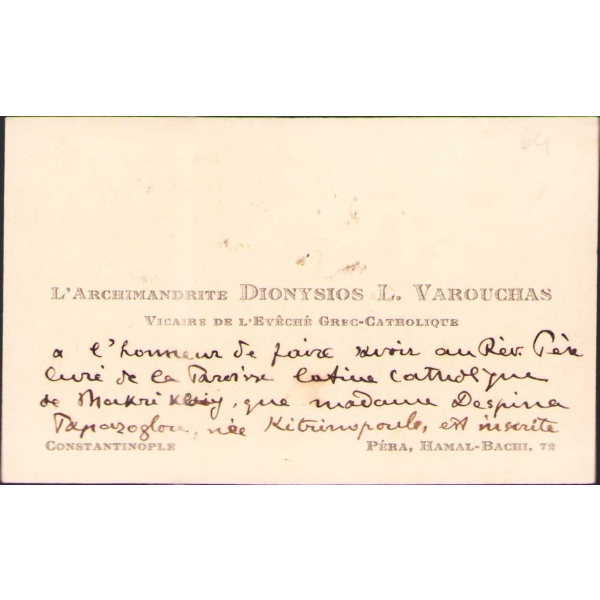 64
L'ARCHIMANDRITE DIONYSIOS L. VAROUCHAS
VICAIRE DE L'EVÊCHÉ GREC-CATHOLIQUE
a l'honneur de faire savoir au Rév. Père
curé de la Paroisse latine catholique
de Makri Keuy, que madame Despina
Papazoglou, née Kitrinopoulo, est inscrite
CONSTANTINOPLE PÉRA, HAMAL-BACHI, 72